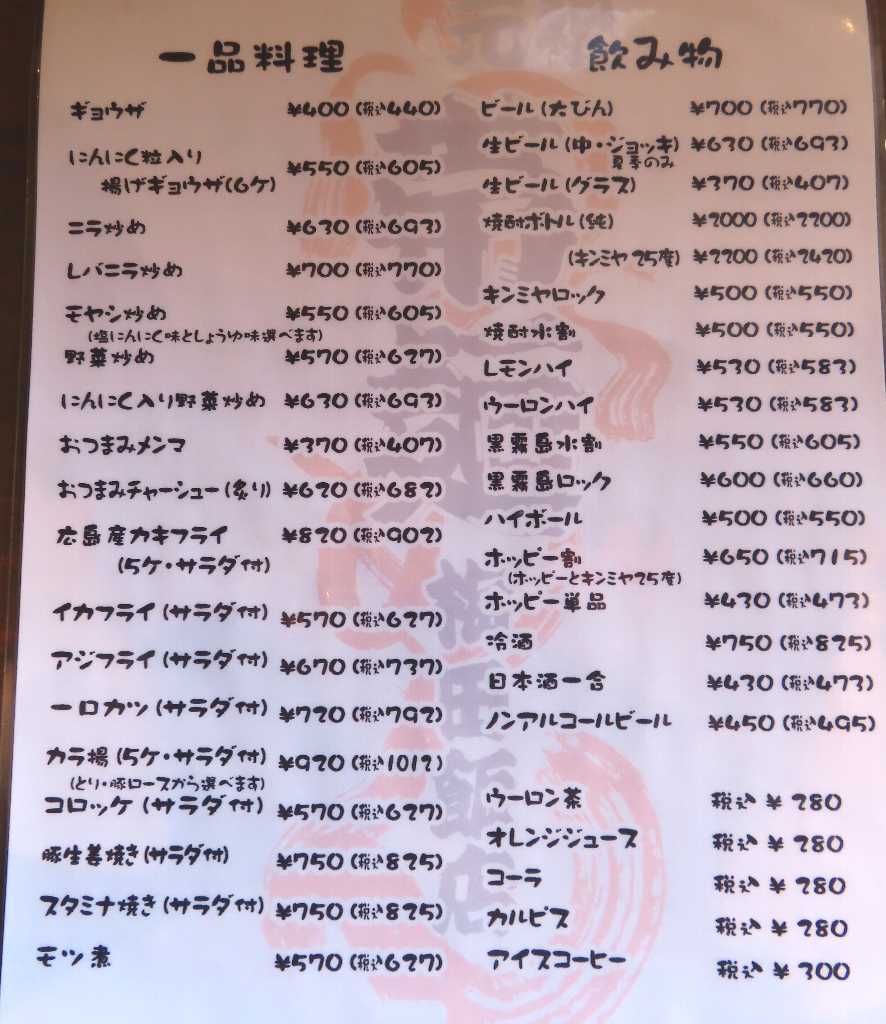 一品料理
ギョウザ ¥400(税込440)
にんにく粒入り
揚げギョウザ(6ケ) ¥550(税込605)
ニラ炒め ¥630(税込693)
レバニラ炒め ¥700(税込770)
モヤシ炒め ¥550(税込605)
(塩にんにく味としょうゆ味選べます)
野菜炒め ¥570(税込627)
にんにく入り野菜炒め ¥630(税込693)
おつまみメンマ ¥370(税込407)
おつまみチャーシュー(炙り) ¥620(税込682)
広島産カキフライ ¥820(税込902)
(5ケ・サラダ付)
イカフライ(サラダ付) ¥570(税込627)
アジフライ(サラダ付) ¥670(税込737)
一口カツ(サラダ付) ¥720(税込792)
カラ揚(5ケ・サラダ付) ¥920(税込1012)
(とり・豚ロースから選べます)
コロッケ(サラダ付) ¥570(税込627)
豚生姜焼き(サラダ付) ¥750(税込825)
スタミナ焼き(サラダ付) ¥750(税込825)
モツ煮 ¥570(税込627)
飲み物
ビール(大びん) ¥700(税込770)
生ビール(中・ジョッキ) ¥630(税込693)
夏季のみ
生ビール(グラス) ¥370(税込407)
焼酎ボトル(純) ¥2000(税込2200)
(キンミヤ25度) ¥2200(税込2420)
キンミヤロック ¥500(税込550)
焼酎水割 ¥500(税込550)
レモンハイ ¥530(税込583)
ウーロンハイ ¥530(税込583)
黒霧島水割 ¥550(税込605)
黒霧島ロック ¥600(税込660)
ハイボール ¥500(税込550)
ホッピー割 ¥650(税込715)
(ホッピーとキンミヤ25度)
ホッピー単品 ¥430(税込473)
冷酒 ¥750(税込825)
日本酒一合 ¥430(税込473)
ノンアルコールビール ¥450(税込495)
ウーロン茶 税込 ¥280
オレンジジュース 税込 ¥280
コーラ 税込 ¥280
カルピス 税込 ¥280
アイスコーヒー 税込 ¥300